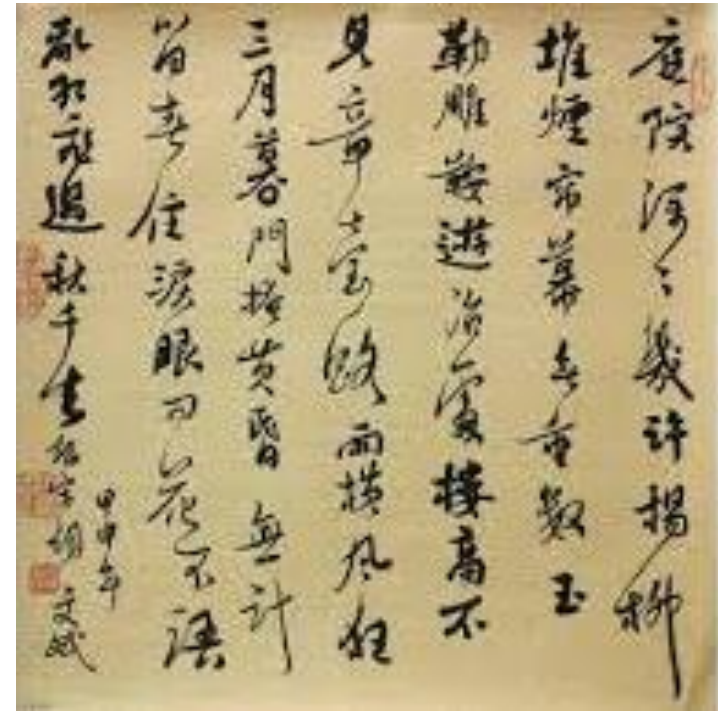 庭院深〻幾許楊柳
堆煙帘幕無重數玉
勒雕鞍遊冶處樓高不
見章臺路雨橫風狂
三月暮門掩黃昏無計
留春住淚眼問花不語
亂紅飛過秋千去
甲申年